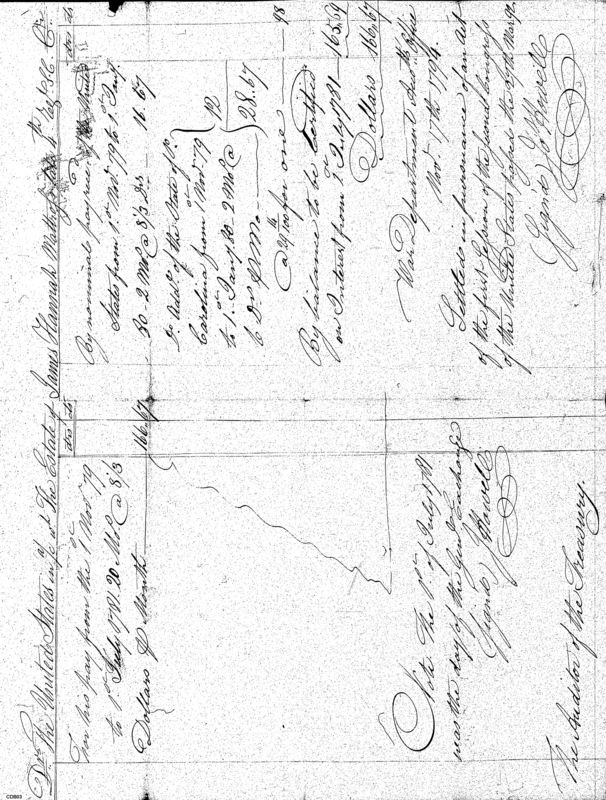 Dr. The United States in a/c wt. The Estate of James Hannah Matthe Regt. SC Cr.
dols cts
For his pay from the 1st Novr. 79
to 1st July 1781 20 Mos. @ 8/3
Dollars P Month
166.67
Note The 1st of July 1781
was the day of the Genl. Exchange
Signd J Howell
The Auditor of the Treasury.
dols cts
By nominal pay recd. of the United
States from 1st Novr. 79 to 1st Jany.
80 2 Mos @ 8/3 Drs 16.67
Do. Adv'd. of the State of So.
Carolina from 1st Novr. 79
to 1st Jany 80. 2 Mos @
6 Drs P Mo.
12
28.67
@ for one 98
By balance to be Certified
on Interest from 1st July 1781 165.69
Dollars 166.67
War Department Accots. Office
Novr. 17th 1794.
Settled in pursuance of an Act
of the first Session of the Second Congress
of the United States passed the 27th Mar. 92.
Signd J Howell
CD803